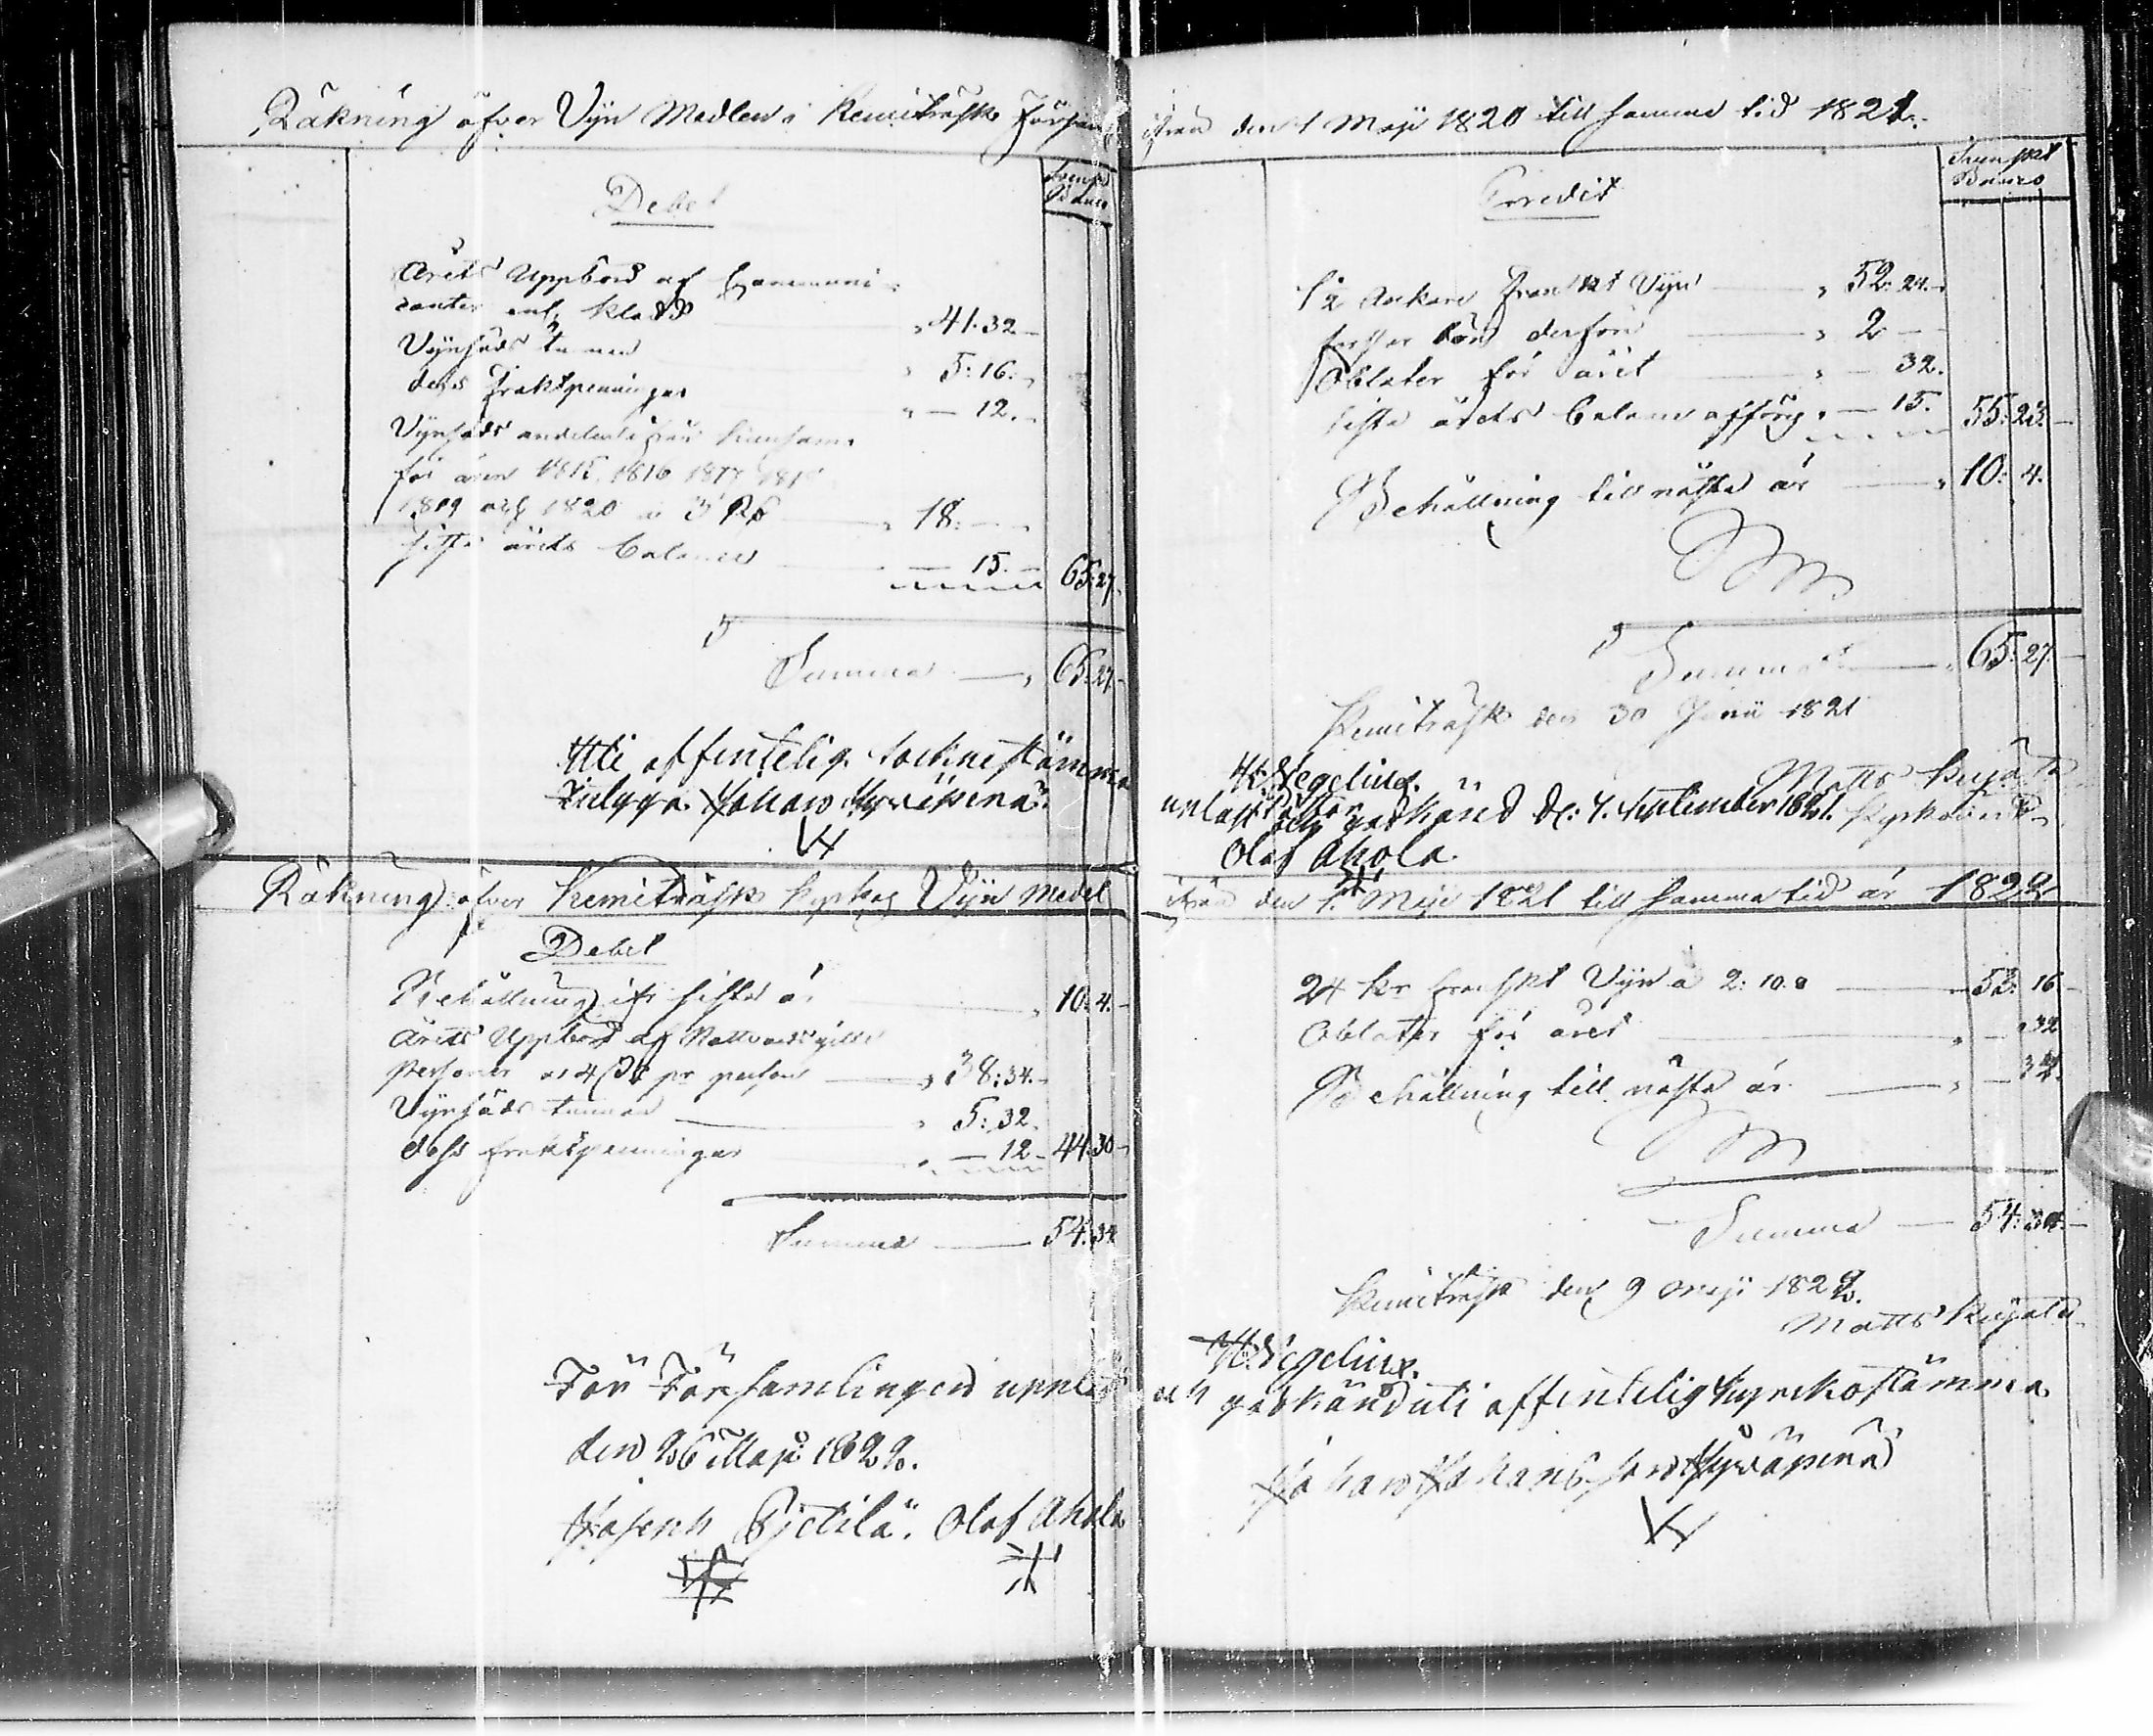 Räkning öfver Vijn Medlen i Kemiträsk Församl
Debet
Svenskt
Banco
Årets Uppbörd af Communi-
canter enl. kladd " 41.32 -
Vijnsäds tunnan " 5: 16. -
dess fraktpenningar " — 12. -
Vijnsäds andelen från Kuusamo
för åren 1815, 1816 1817 1818
1819 och 1820 a 3 Rd " 18: — -
sista årets balance — 15. - 65: 27.
Summa — " 65: 27. -
Uti offentelig Sockne stämma
Zulgga. Johan Hyväpenä.
Räkning öfver Kemiträsk Kyrkas Vijn Medel
Debet
Behållning ifr sista år " 10: 4. -
Årets Uppbörd af Nattvards
Personer a 4 pr person — " 38: 34. -
Vijnsäds tunnan " 5: 32.
dess fraktpenningar " — 12. - 44. 30 -
Summa — 54. 34
För Församlingen uppläst
den 26 Maji 1822.
Joseph Pietilä. Olof Ahola
ifrån den 1 Maji 1820 till samma tid 1821.
Credit
Svenskt
Banco
1½ Ankare Franskt Vijn — " 52: 24. -
derföre — " 2 —
Oblater för året " — 32.
sista årets balance " — 15. 55: 23. —
Behållning till nästa år — " 10: 4.
Summa — " 65: 27. —
Kemiträsk den 30 Junii 1821
H: Wegelius. Matts Kujala
Pastor Kyrkovärd
upläst och godkänd d: 4. September 1821.
Olof Ahola.
ifrån den 1. Maji 1821 till samma tid år 1822
24 kr franskt Vijn a 2: 10. 8 — 52: 16 -
Oblater för året — " — 32
Behållning till nästa år — " — 34.
Summa — 54: 34. —
Kemiträsk den 9 Maji 1822.
Matts Kujala
H: Wegelius.
och godkänd uti offentelig Kyrckostämma
Johan Johansson Hyväpenä